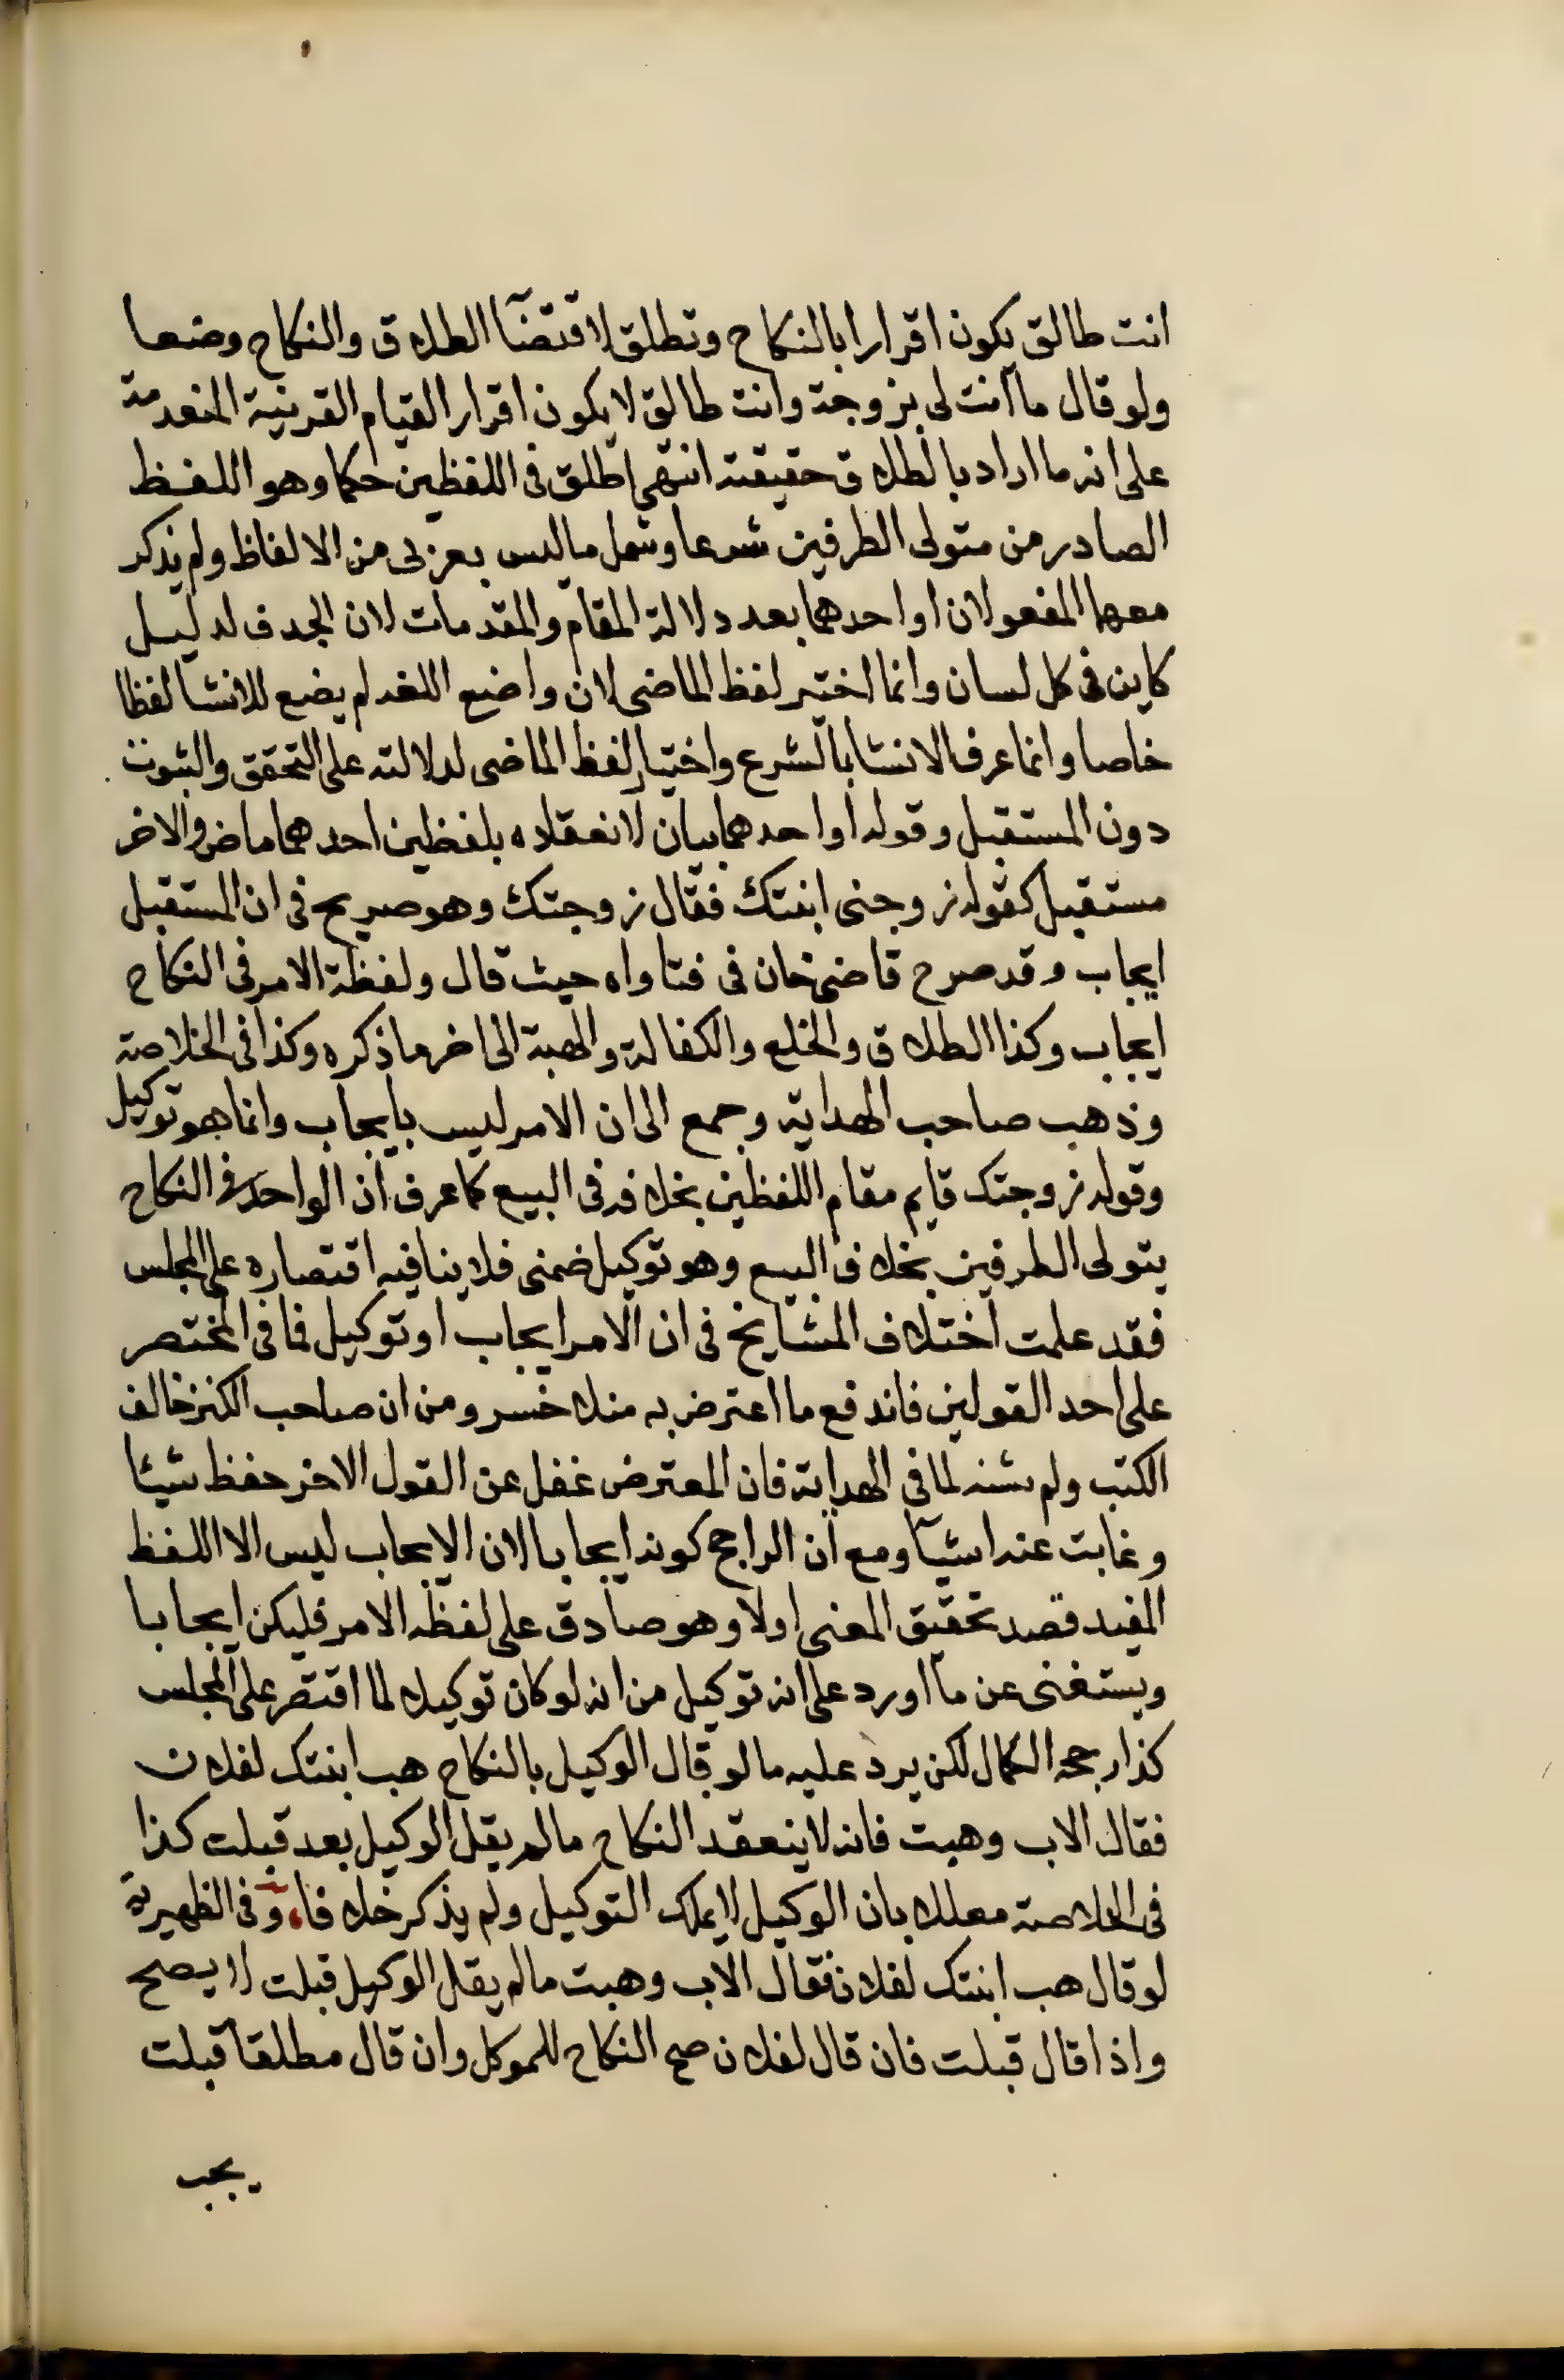 انت طالق يكون اقرارا بالنكاح وتطلق لاقتضآ الطلاق والنكاح وضعا
ولو قال ما انت لى بزوجة وانت طالق لا يكون اقرار القيام القرينية المتقدمة
على انه ما اراد بالطلاق حقيقته انتهى اطلق فى اللفظين حكما وهو اللفظ
الصادر من متولى الطرفين شرعا وشمل ما ليس بعربى من الالفاظ ولم يذكر
معهما المفعولان او احدهما بعد دلالة المقام والمقدمات لان الحدف لدليل
كاين فى كل لسان وانما اختير لفظ الماضى لان واضع اللغه لم يضع للانشا لفظا
خاصا وانما عرف الانشا بالشرع واختيار لفظ الماضى لدلالته على التحقق والثبوت
دون المستقبل وقوله او احدهما بيان لانعقاده بلفظين احدهما ماض والاخر
مستقبل كقوله زوجنى ابنتك فقال زوجتك وهو صريح فى ان المستقبل
ايجاب وقد صرح قاضى خان فى فتاواه حيث قال ولفظة الامر فى النكاح
ايجاب وكذا الطلاق والخلع والكفالة والهبة الى اخر ما ذكره وكذا فى الخلاصة
وذهب صاحب الهداية وجمع الى ان الامر ليس بايجاب وانما هو توكيل
وقوله زوجتك قايم مقام اللفظين بخلافه فى البيع كما عرف ان الواحد فى النكاح
يتولى الطرفين بخلاف البيع وهو توكيل ضمنى فلا ينافيه اقتصاره على المجلس
فقد علمت اختلاف المشايخ فى ان الامر ايجاب او توكيل فما فى المختصر
على احد القولين فاندفع ما اعترض به منلا خسرو من ان صاحب الكنز خالف
الكتب ولم يتنبه لما فى الهداية فان المعترض غفل عن القول الاخر حفظ شيئا
وغابت عنه اشيآ ومع ان الراجح كونه ايجابا لان الايجاب ليس الا اللفظ
المفيد قصد تحقيق المعنى اولا وهو صادق على لفظه الامر فليكن ايجابا
ويستغنى عن ما اورد على انه توكيل من انه لو كان توكيلا لما اقتصر على المجلس
كذا رجحه الكمال لكن يرد عليه ما لو قال الوكيل بالنكاح هب ابنتك لفلان
فقال الاب وهبت فانه لا ينعقد النكاح ما لم يقل الوكيل بعد قبلت كذا
فى الخلاصة معللا بان الوكيل لا يملك التوكيل ولم يذكر خلافا، وفى الظهيرية
لو قال هب ابنتك لفلان فقال الاب وهبت ما لم يقل الوكيل قبلت لا يصح
واذا قال قبلت فان قال لفلان صح النكاح للموكل وان قال مطلقا قبلت
يجب